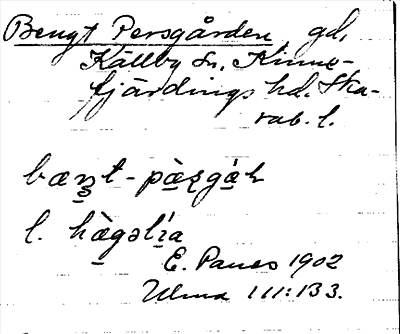 Bengt Persgården gd,
Källby sn, Kinne-
fjärdings hd. Ska-
rab. l.
bæŋt - pàʂgá̱ɽ
l. hàgəlía
E. Panes 1902
Ulma 111:133.